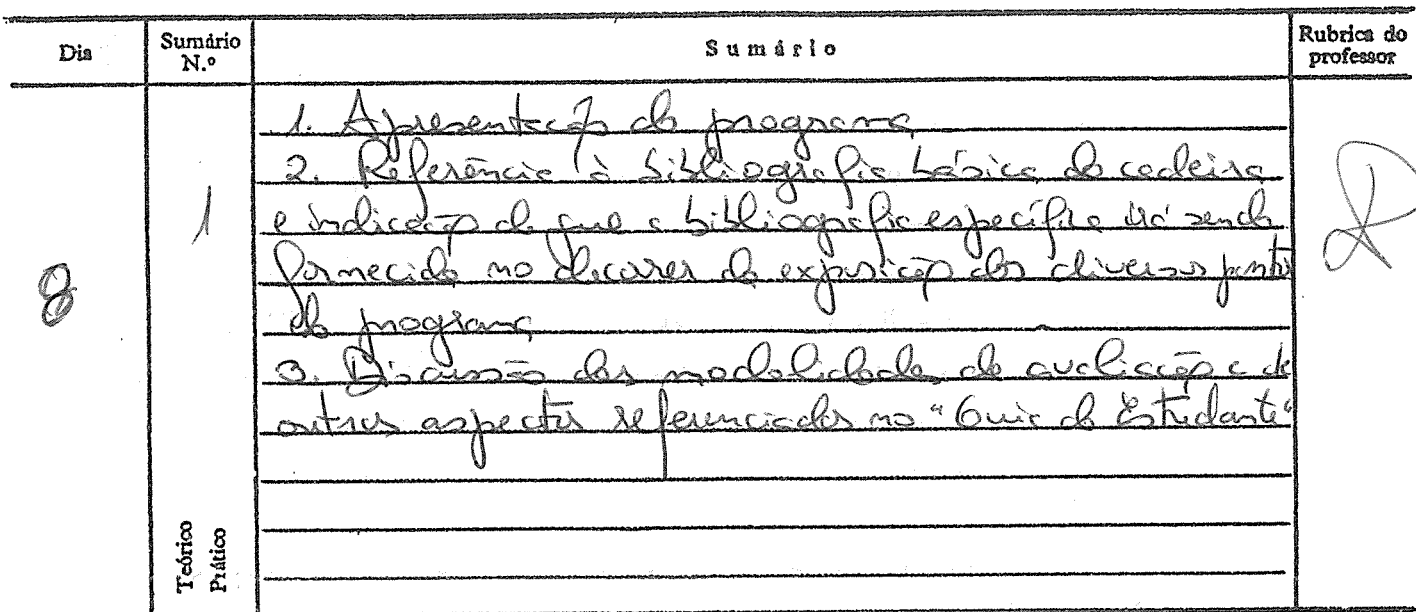 Dia
Sumário N.º
Sumário
Rubrica do professor
8
1
1. Apresentação do programa
2. Referência à bibliografia básica da cadeira
e indicação de que a bibliografia específica irá sendo
fornecida no decorrer da exposição dos diversos pontos
do programa
3. Discussão das modalidades de avaliação e de
outros aspectos referenciados no "Guia do Estudante"
Teórico
Prático